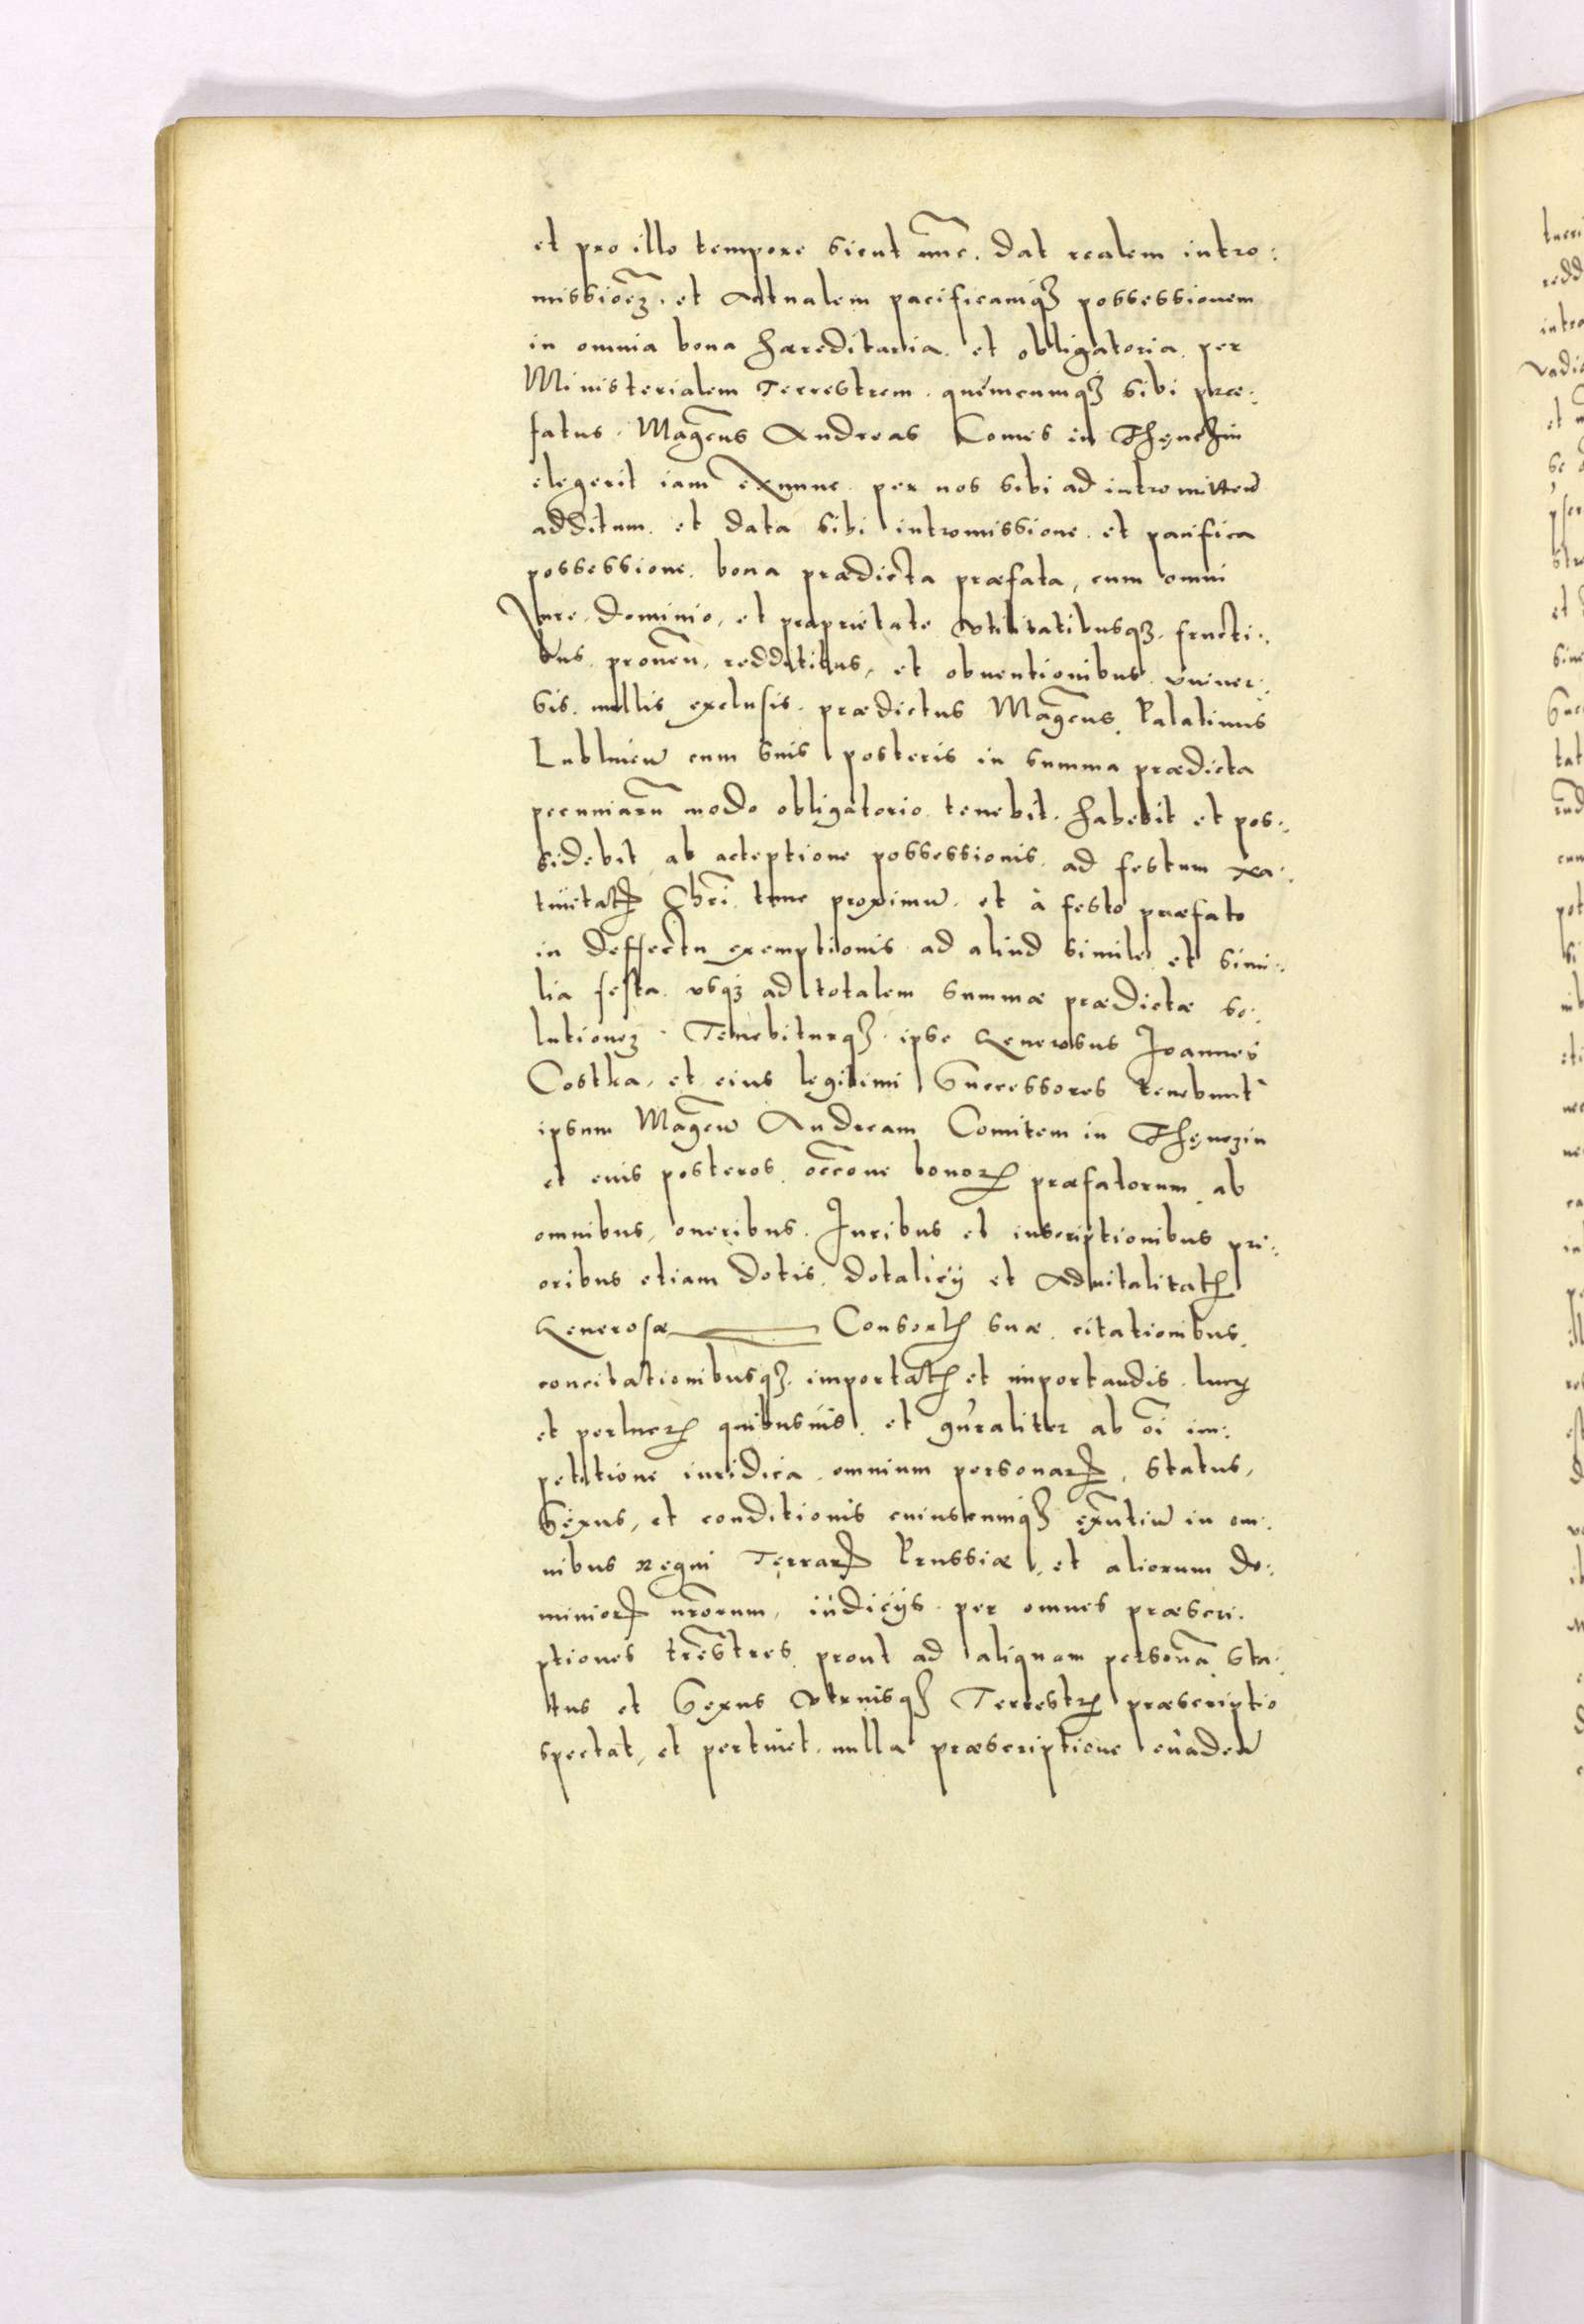 et pro illo tempore sicut nūc. dat realem intro:
missioēz. et Actualem pacificamq3 possessionem
in omnia bona hæreditaria. et obligatoria. per
Ministerialem Terrestrem. quemcumq3 sibi præ:
fatus. Magcus Andreas Comes in Thęnczin
elegerit iam exnunc. per nos sibi ad intromitteñ
additum. et data sibi intromissione. et pacifica
possessione. bona prædicta præfata, cum omni
Jure. dominio, et proprietate vtilitatibusq3. fructi:
bus. proueñ. redditibus, et obuentionibus. vniuer:
sis. nullis exclusis. prædictus Magcus. Palatinus
Lublineñ cum suis posteris in summa prædicta
pecuniarū modo obligatorio. tenebit. habebit et pos:
sidebit ab acceptione possessionis. ad festum Na:
tiuitatꝭ Chrī. tunc proximū. et à festo præfato
in deffectu exemptionis ad aliud simile et simi:
lia festa. vsq3 ad totalem summæ prædictæ so:
lutionez. Tenebiturq3. ipse Generosus Joannes
Costka, et eius legitimi Successores tenebunt'
ipsum Magcū Andream Comitem in Thęnczin
et euis posteros. occōne bonorꝝ præfatorum ab
omnibus, oneribus. Juribus et inscriptionibus pri:
oribus etiam dotis. dotalicij et Aduitalitatꝭ
Generosæ ——— Consortꝭ suæ. citationibus,
concitationibusq3. importatꝭ et importandis. lucrꝭ
et perlucrꝭ quibusuis. et gñraliter ab oī im:
petitione iuridica. omnium personarꝝ, status,
Sexus, et conditionis cuiuscumq3 exñtiū in om:
nibus Regni Terrarꝝ Prussiæ, et aliorum do:
miniorꝝ nrōrum, iudicijs. per omnes præscri:
ptiones trēstres. prout ad aliquam personā sta:
tus et Sexus vtriusq3 Terrestrꝭ præscriptio
spectat, et pertinet. nulla præscriptione euadeñ